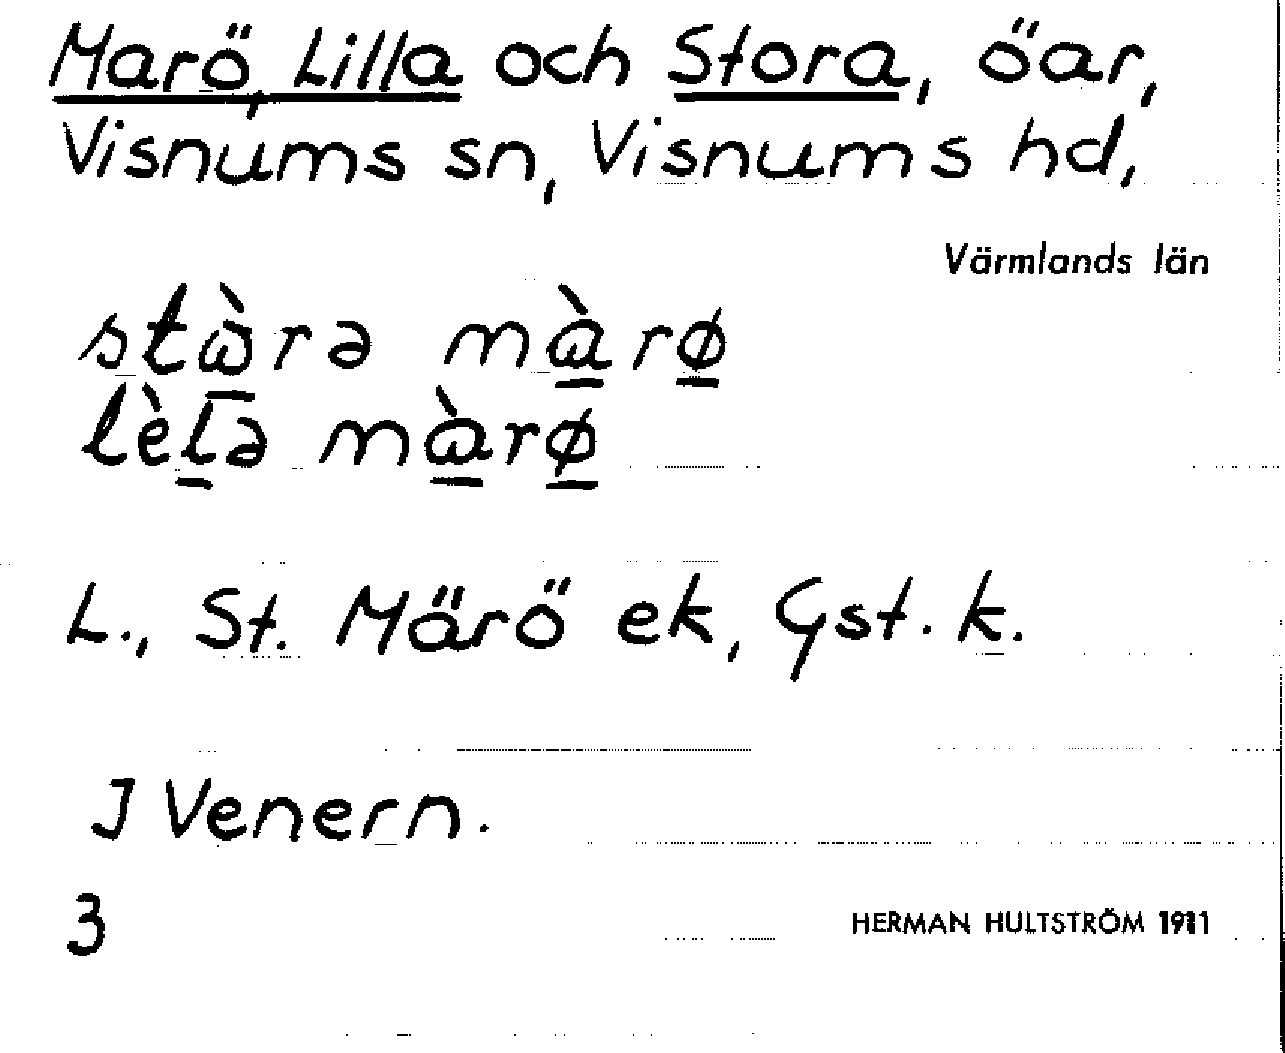 Marö, Lilla och Stora, öar,
Visnums sn, Visnums hd,
Värmlands län
stὼrə màrø
lèlə màrø
L., St. Märö ek, Gst. k.
I Venern.
3
HERMAN HULTSTRÖM 1911